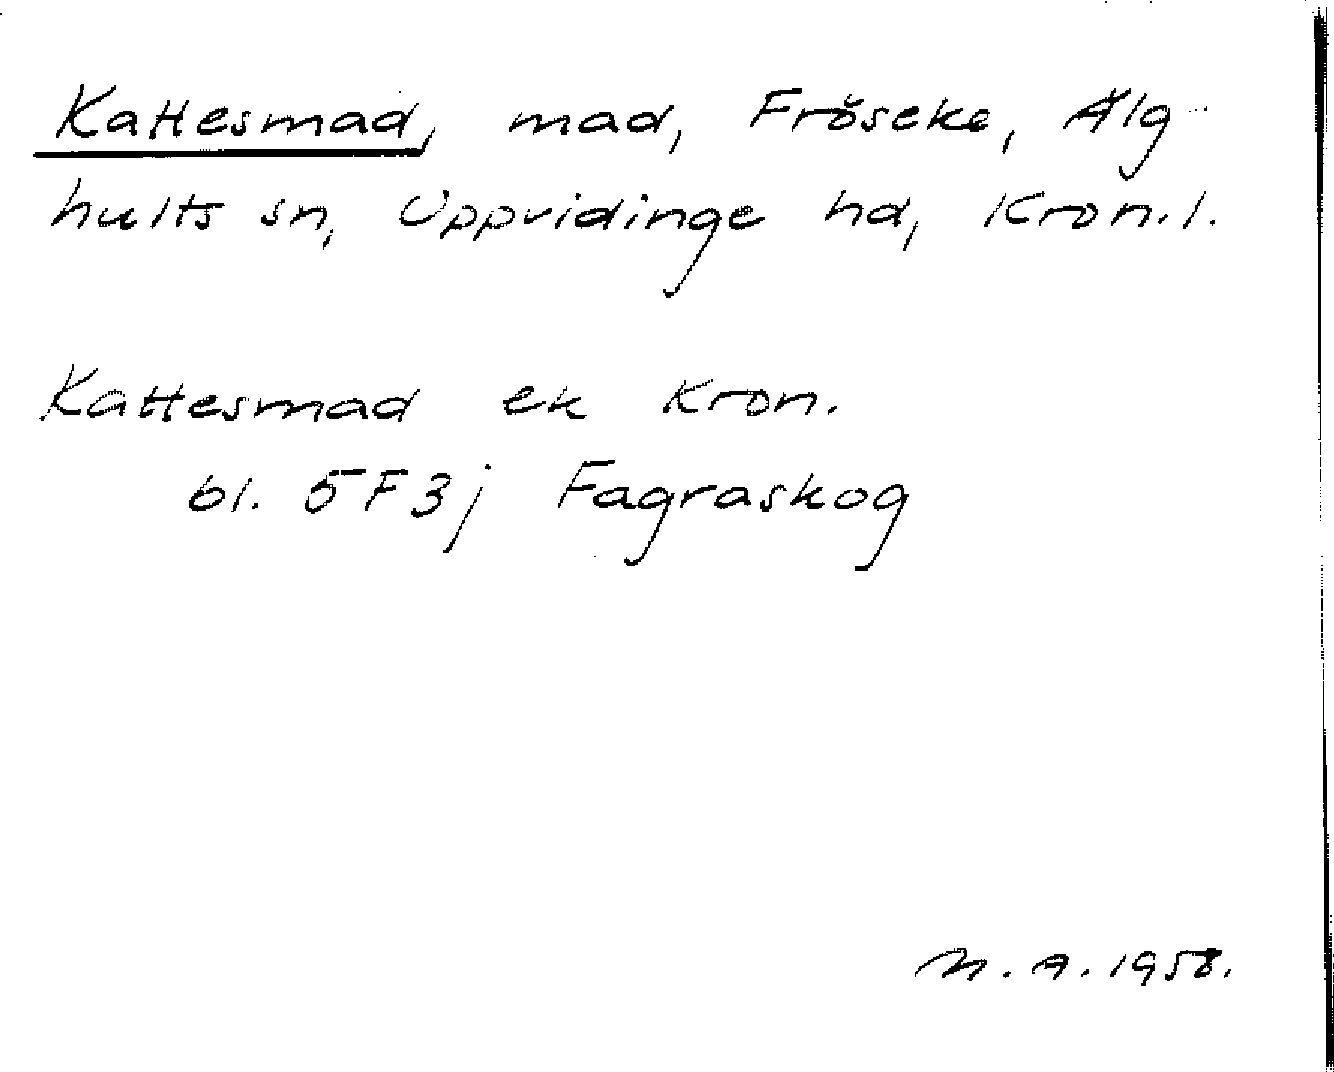 Kattesmad, mad, Fröseke, Älg-
hults sn, Uppvidinge hd, Kron.l.
Kattesmad ek Kron.
bl. 5F3j Fagraskog
M.A. 1958.